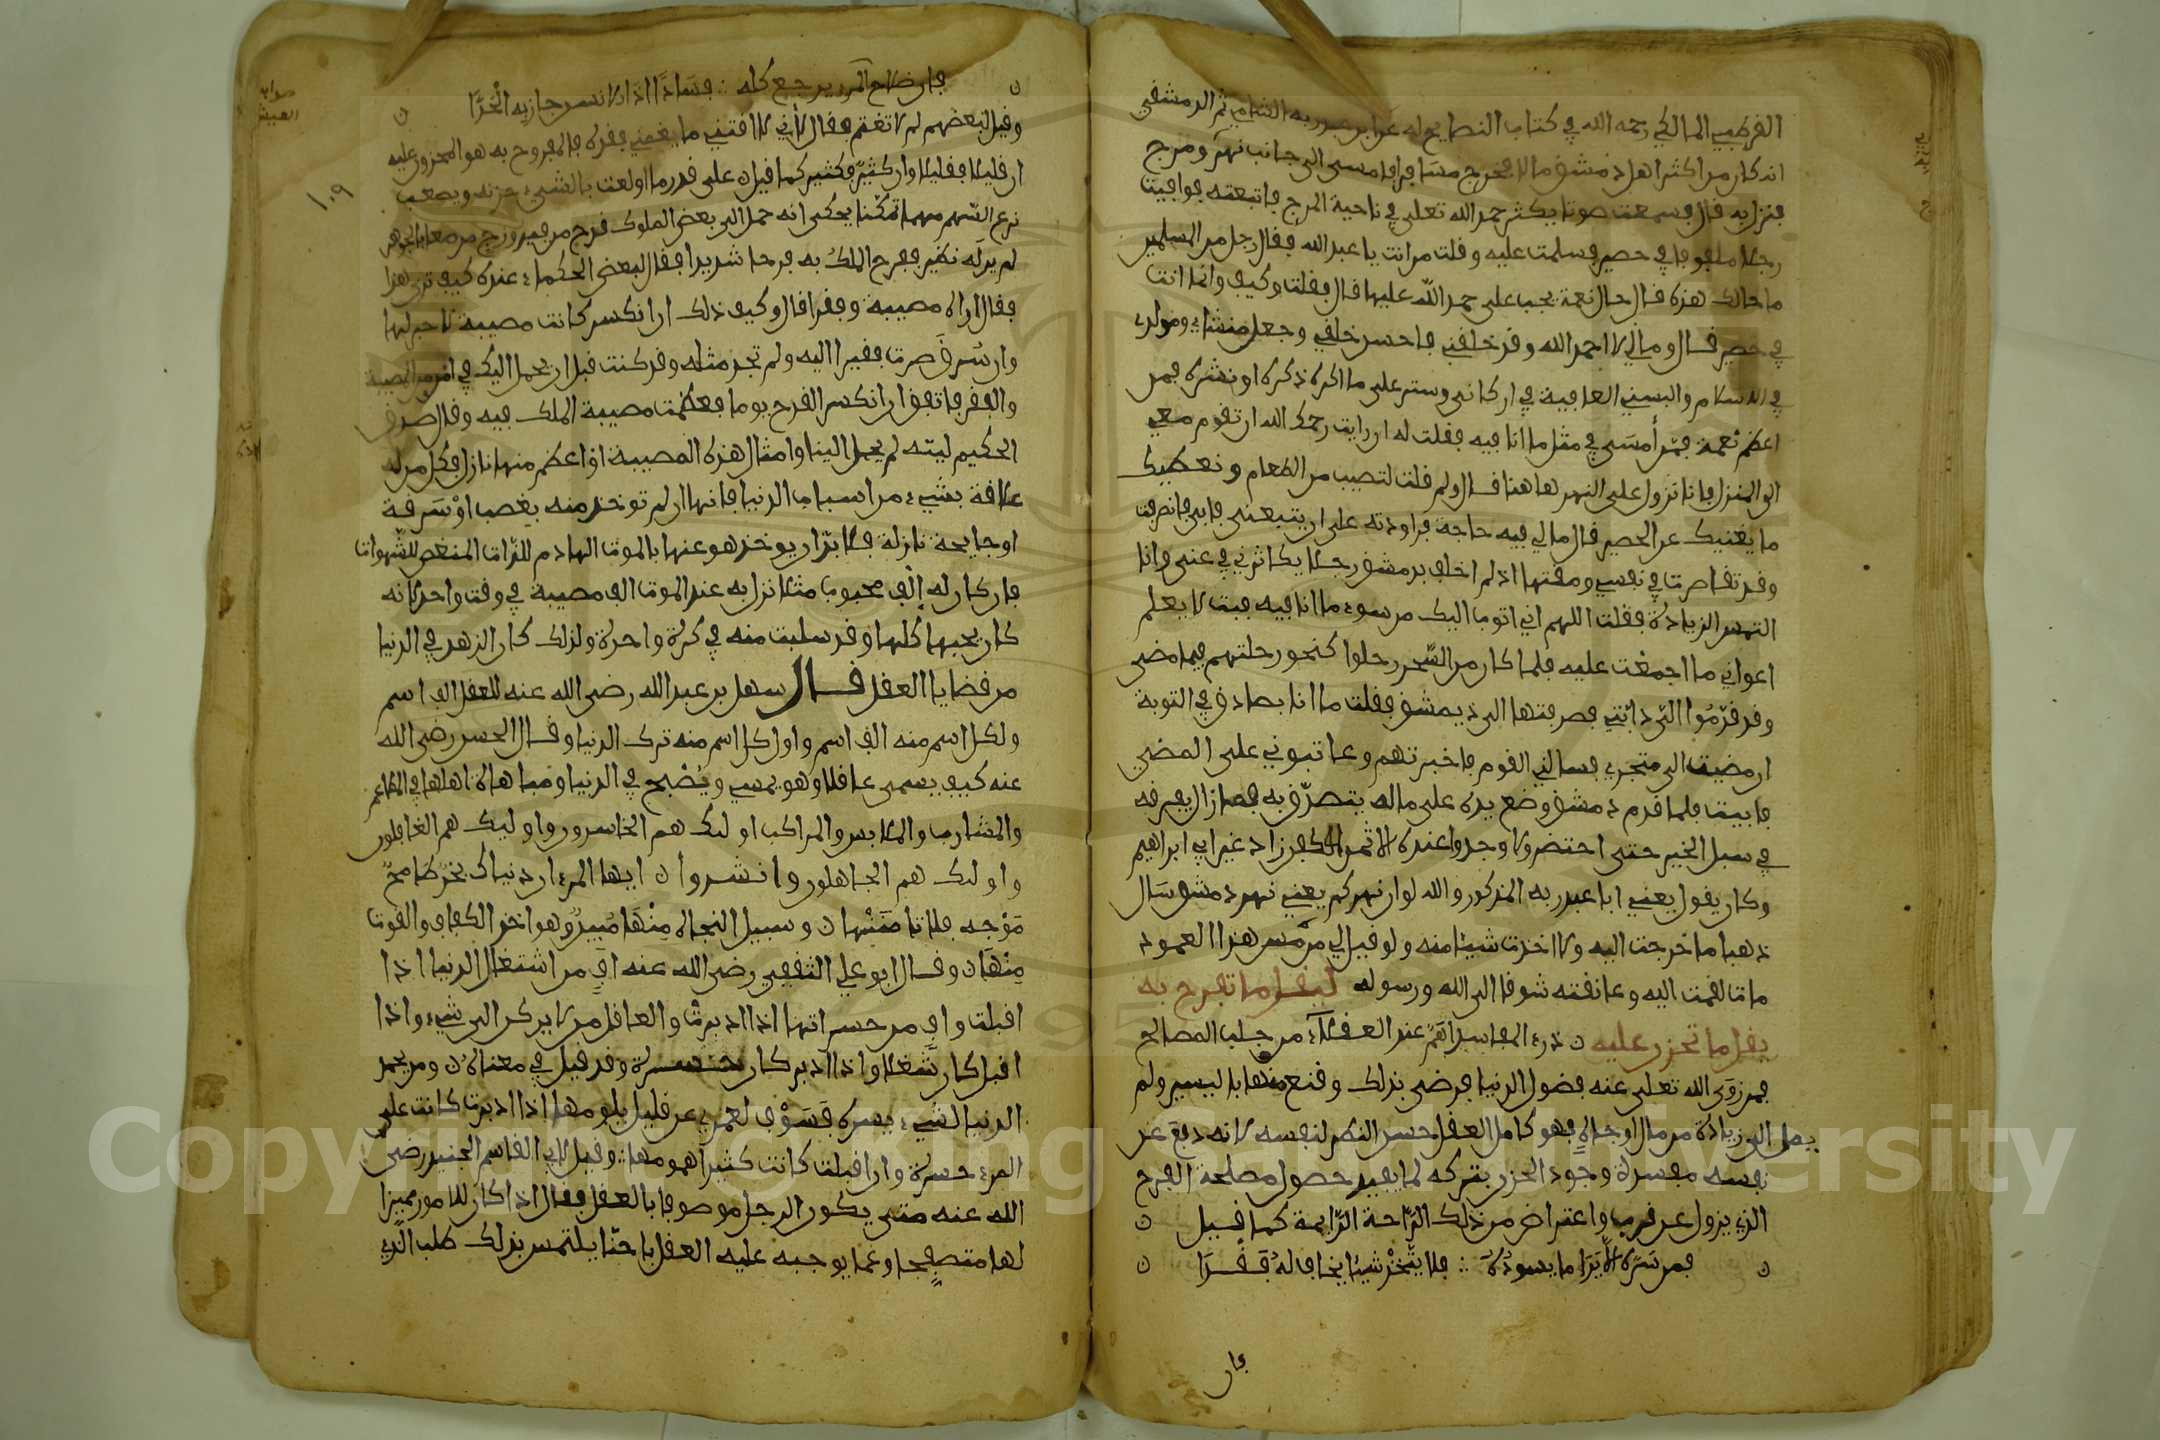 القرطبي المالكي رحمه الله في كتاب النصايح له عن ابن عبد ربه الشامي ثم الدمشقي
انه كان من اكثر اهل دمشق مالا فخرج مسافرا فامسى الى جانب نهر ومرج
فنزل به قال فسمعت صوتا يكثر حمد الله تعلى في ناحية المرج فاتبعته فوافيت
رجلا ملفوفا في حصير فسلمت عليه وقلت من انت يا عبد الله فقال رجل من المسلمين
ما حالك هذه قال حال نعمة يجب على حمد الله عليها قال فقلت وكيف وانما انت
في حصير قال ومالي لا احمد الله وقد خلقني فاحسن خلقي وجعل منشاءي ومولدي
في الاسلام والبسني العافية في اركاني وستر على ما اكره ذكره او نشره فمن
اعظم نعمة ممن أمسى في مثل ما انا فيه فقلت له ان رايت رحمك الله ان تقوم معي
الى المنزل فانا نزول على النهر هاهنا قال ولم قلت لتصيب من الطعام ونعطيك
ما يغنيك عن الحصير قال مالي فيه حاجة فراودته على ان يتبعني فابى فانصرفت
وقد تقاصرت في نفسي ومقتها اذ لم اخلف بدمشق رجلا يكاثرني في غنى وانا
التمس الزيادة فقلت اللهم اني اتوب اليك من سوء ما انا فيه فبت لا يعلم
اعواني ما اجمعت عليه فلما كان من السحر رحلوا كنحو رحلتهم فيما مضى
وقد قدموا الي دابتي فصرفتها الى دمشق فقلت ما انا بصادق في التوبة
ان مضيت الى متجري فسالني القوم فاخبرتهم وعاتبوني على المضي
فابيت فلما قدم دمشق وضع يده على ماله يتصدق به فما زال يفرقه
في سبل الخير حتى احتضر ولا وجدوا عنده الا ثمن الكفن زاد غير ابي ابراهيم
وكان يقول يعني ابا عبد ربه المذكور والله لو ان نهركم يعني نهر دمشق سال
ذهبا ما خرجت اليه ولا اخذت شيئا منه ولو قيل لي من مس هذا العمود
مات لقمت اليه وعانقته شوقا الى الله ورسوله ليقل ما تفرح به
يقل ما تحزن عليه ن درء المفاسد اهم عند العقلاء من جلب المصالح
فمن زوى الله تعلى عنه فضول الدنيا فرضي بذلك وقنع منها باليسير ولم
يصل الى زيادة من مال او جاه فهو كامل العقل حسن النظر لنفسه لانه دفع عن
نفسه مفسدة وجود الحزن بتركه لما يفيد حصول مصلحة الفرح
الذي يزول عن قرب واعتراض من ذلك الراحة الدايمة كما قيل ن
ن فمن سره الا يرا ما يسوءه ∴ فلا يتخذ شيئا يخاف له فقدا ن
فان
ن فان صلاح المرء يرجع كله ∴ فسادا اذا الانسر جاز به الحدا ن
وقيل لبعضهم لم لا تغتم فقال لأني لا اقتني ما يغمني فقده فالمفروح به هو المحزون عليه
ان قليلا فقليلا وان كثير فكثير كما قيل ن على قدر ما اولعت بالشيء حزنه ويصعب
نزع السهم مهما تمكنا يحكى انه حمل الى بعض الملوك قدح من فيروزج مرصعا بالجوهر
لم ير له نظير ففرح الملك به فرحا شديدا فقال لبعض الحكماء عنده كيف ترى هذا
فقال اراه مصيبة وفقرا قال وكيف ذلك ان انكسر كانت مصيبة لا جبر لها
وان سرق صرت فقيرا اليه ولم تجد مثله وقد كنت قبل ان يحمل اليك في امن من المصيبة
والفقر فاتفق ان انكسر القدح يوما فعظمت مصيبة الملك فيه وقال صدق
الحكيم ليته لم يحمل الينا وامثال هذه المصيبة او اعظم منها نازل بكل من له
علاقة بشيء من اسباب الدنيا فانها ان لم توخذ منه بغصب او سرقة
او جايحة نازلة فلا بد ان يوخذ هو عنها بالموت الهادم للذات المنغص للشهوات
فان كان له الف محبوب مثلا نزل به عند الموت الف مصيبة في وقت واحد لانه
كان يحبها كلها وقد سلبت منه في كرة واحدة ولذلك كان الزهد في الدنيا
من قضايا العقل قال سهل بن عبد الله رضي الله عنه للعقل الف اسم
ولكل اسم منه الف اسم واول كل اسم منه ترك الدنيا وقال الحسن رضي الله
عنه كيف يسمى عاقلا وهو يمسي ويصبح في الدنيا ومباهاة اهلها في المطاعم
والمشارب والملابس والمراكب اولئك هم الخاسرون واوليك هم الغافلون
واولئك هم الجاهلون وانشدوا ن ايها المرء ان دنياك بحر طامح
موجه فلا تامننها ن وسبيل النجاة منها مبين وهو اخذ الكفاف والقوت
منها ن وقال ابو علي الثقفي رضي الله عنه اف من اشتغال الدنيا اذا
اقبلت واف من حسراتها اذا ادبرت والعاقل من لا يركن الى شيء واذا
اقبل كان شغلا واذا ادبر كان حسرة وقد قيل في معناه ن ومن يحمد
الدنيا لشيء يسره فسوف لعمري عن قليل يلومها اذا ادبرت كانت على
المرء حسرة وان اقبلت كانت كثيرا همومها ∴ وقيل لابي القاسم الجنيد رضي
الله عنه متى يكون الرجل موصوفا بالعقل فقال اذا كان للامور مميزا
لها متصفحا وعما يوجبه عليه العقل باحثا يلتمس بذلك طلب الذي
١٠٩